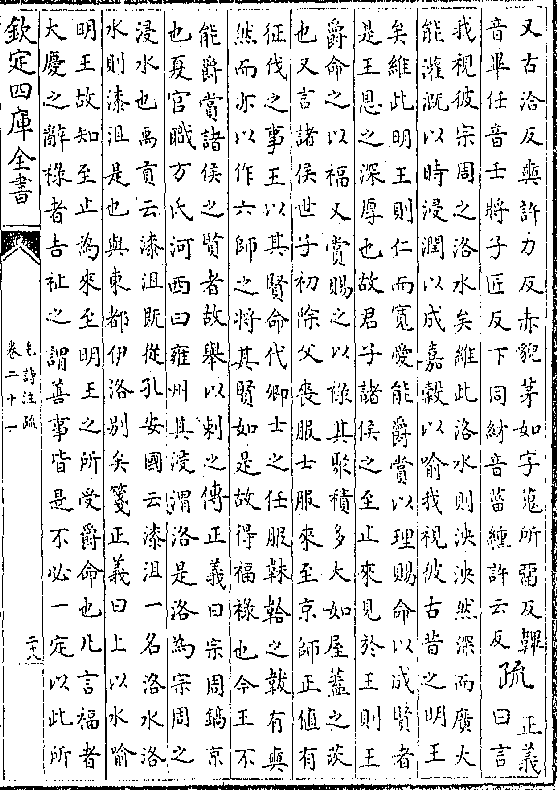 又古洽反奭許力反赤貌茅如字蒐所留反韠
音畢任音壬將子匠反下同紂音菑纁許云反疏正義曰言
我視彼宗周之洛水矣維此洛水則泱泱然深而廣大
能灌溉以時浸潤以成嘉榖以喻我視彼古昔之明王
矣維此明王則仁而寛愛能爵賞以理賜命以成賢者
是王恩之深厚也故君子諸侯之至止來見於王則王
爵命之以福又賞賜之以祿其聚積多大如屋蓋之茨
也又言諸侯世子初除父喪服士服來至京師正值有
征伐之事王以其賢命代卿士之任服韎韐之韍有奭
然而亦以作六師之將其賢如是故得福祿也今王不
能爵賞諸侯之賢者故舉以刺之傳正義曰宗周鎬京
也夏官職方氏河西曰雍州其浸渭洛是洛為宗周之
浸水也禹貢云漆沮既從孔安國云漆沮一名洛水洛
水則漆沮是也與東都伊洛别矣箋正義曰上以水喻
明王故知至止為來至明王之所受爵命也凡言福者
大慶之辭祿者吉祉之謂善事皆是不必一定以此所
欽定四庫全書
毛詩注疏
卷二十一
二十八